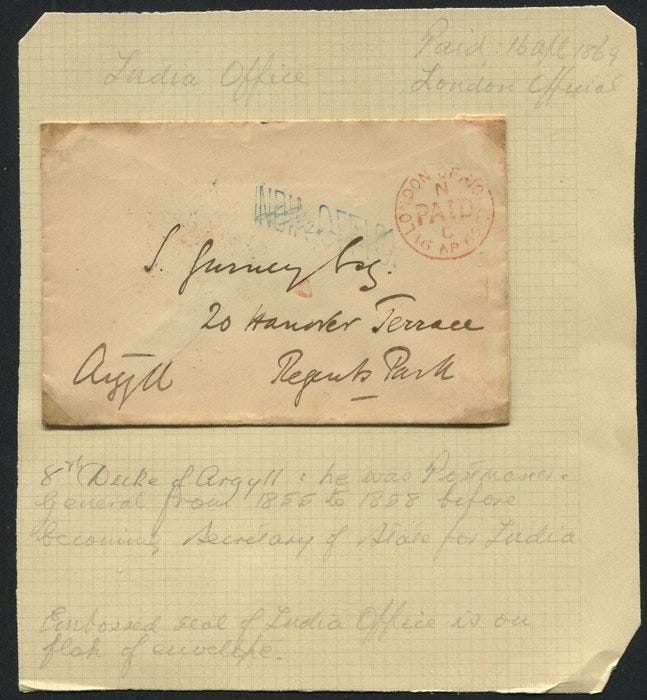 India Office
Paid: 16 Apl 1869
London Official
INDIA OFFICE
LONDON OFFICIAL
N
PAID
C
16 AP 69
S. Gurney Esq.
20 Hanover Terrace
Regents Park
Argyll
8TH Duke of Argyll: he was Postmaster-
General from 1855 to 1858 before
becoming Secretary of State for India
Embossed seal of India Office is on
flap of envelope.